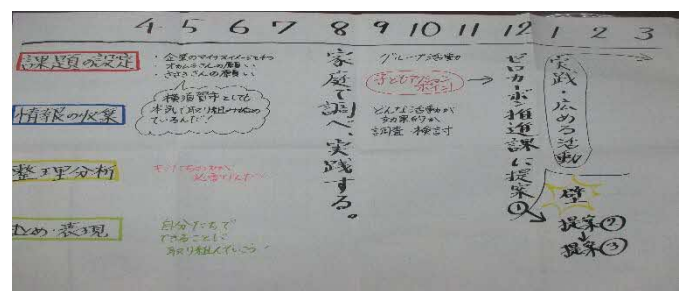 4 5 6 7 8 9 10 11 12 1 2 3
課題の設定
情報の収集
整理分析
まとめ・表現
横須賀市としても
本気で取り組み始め
ているんだ！
自分たちで
できることに
取り組んでいこう
家庭で調べ、実践する。
グループ活動
子どもアクション
ポイント
どんな活動が
効果的か
調査 検討
ゼロカーボン推進課に提案①
実践・広める活動
壁
提案②
提案③